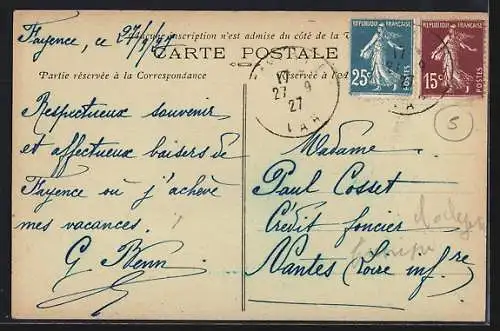 Aucune inscription n'est admise du côté de la
CARTE POSTALE
Partie réservée à la Correspondance
Réservée à l'A
Fayence, ce 27/9/27
Respectueux souvenir
et affectueux baisers de
Fayence où j'achève
mes vacances.
G
REPUBLIQUE FRANÇAISE
25c
POSTES
REPUBLIQUE FRANÇAISE
15c
POSTES
17
27 9
27
VAR
17
9
VAR
5
Madame
Paul Cosset
Crédit foncier
Nantes (Loire infre